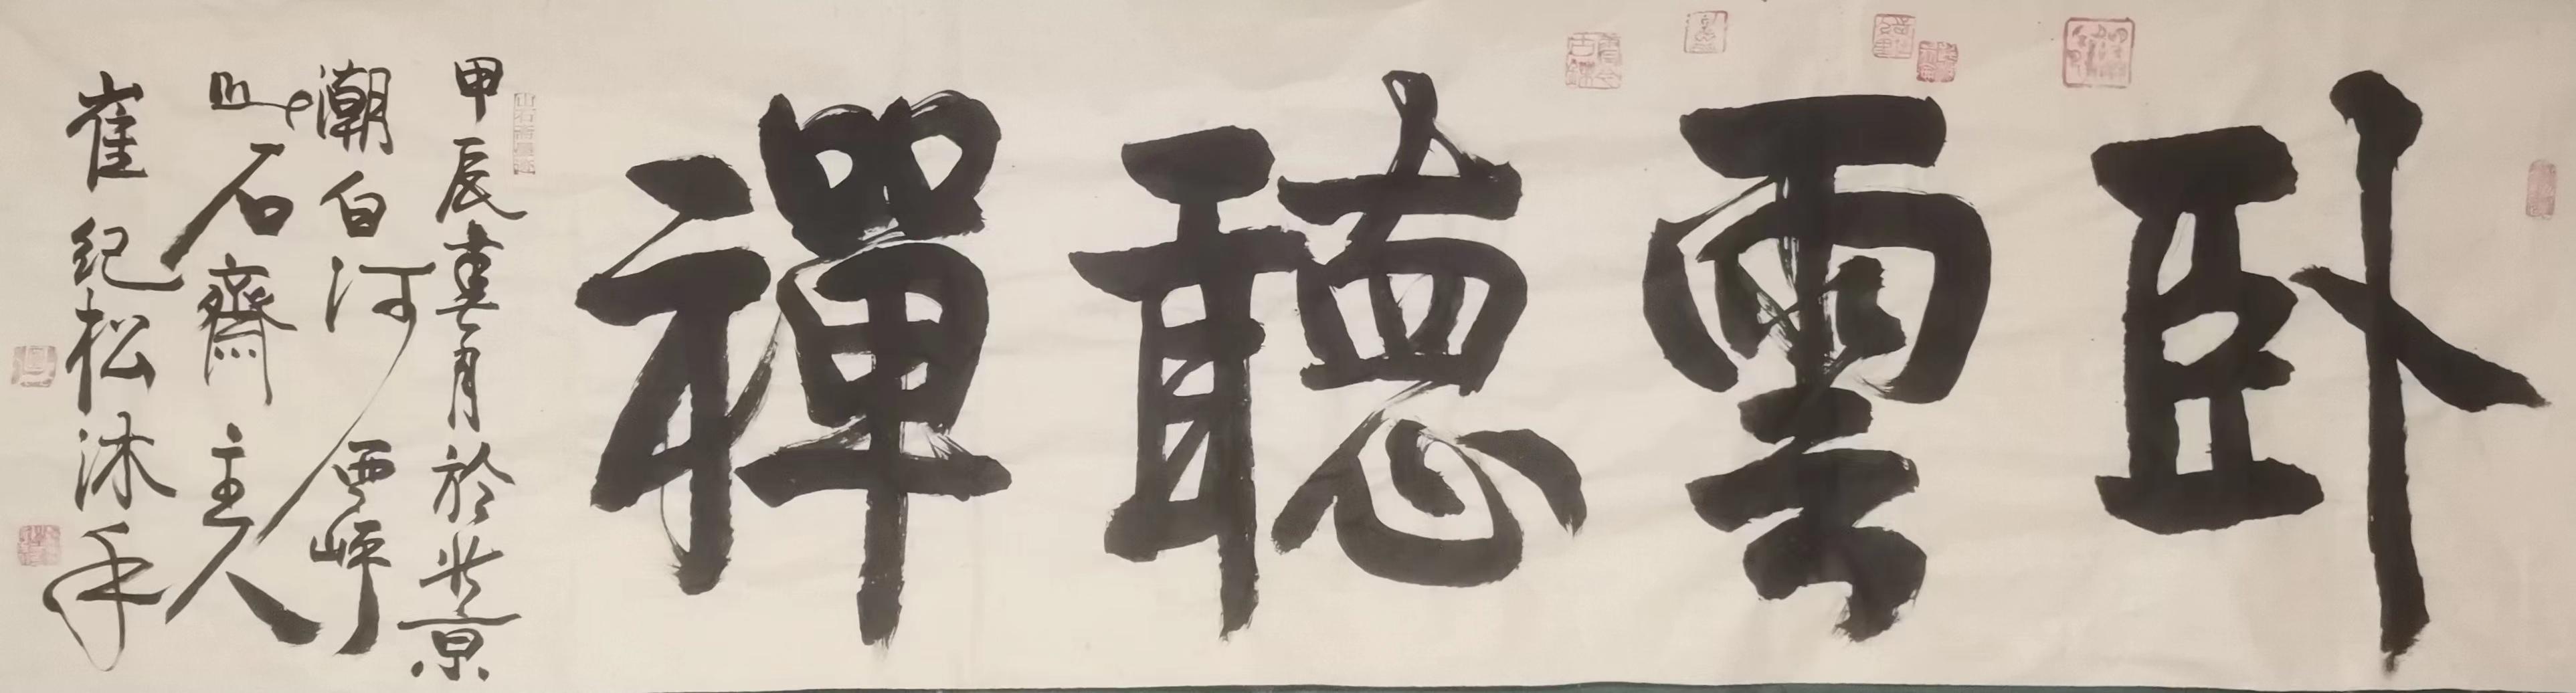 卧雲聽禪
甲辰月於北京
潮白河西岸
山石齋主人
崔紀松沐手